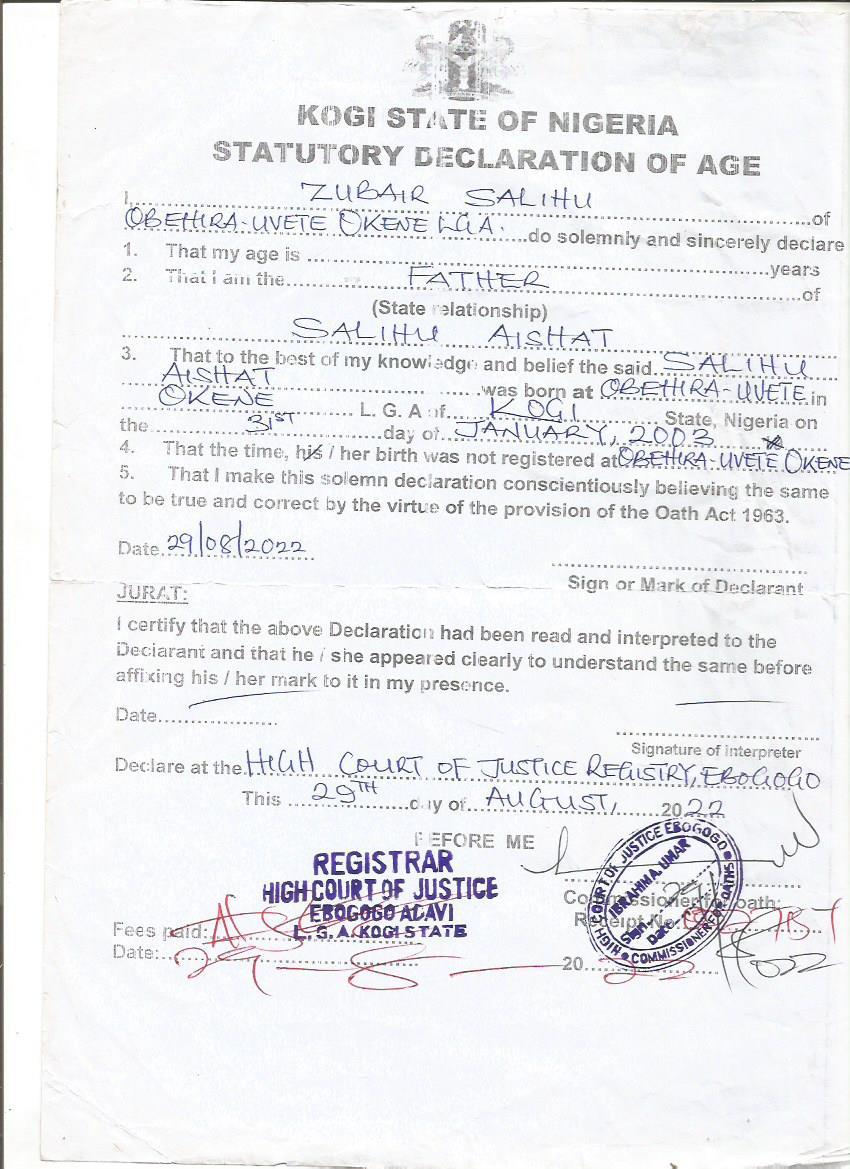 KOGI STATE OF NIGERIA
STATUTORY DECLARATION OF AGE
I, ZUBAIR SALIHU of
OBEHIRA-UVETE OKENE LGA. do solemnly and sincerely declare
1. That my age is ........ years
2. That I am the FATHER of
(State relationship)
SALIHU AISHAT
3. That to the best of my knowledge and belief the said SALIHU
AISHAT was born at OBEHIRA-UVETE in
OKENE L. G. A of. KOGI State, Nigeria on
the 31ST day of JANUARY, 2003
4. That the time, his / her birth was not registered at OBEHIRA-UVETE OKENE
5. That I make this solemn declaration conscientiously believing the same
to be true and correct by the virtue of the provision of the Oath Act 1963.
Date. 29/08/2022
Sign or Mark of Declarant
JURAT:
I certify that the above Declaration had been read and interpreted to the
Declarant and that he / she appeared clearly to understand the same before
affixing his / her mark to it in my presence.
Date....................
Signature of interpreter
Declare at the HIGH COURT OF JUSTICE REGISTRY, EBOGOGO
This 29TH day of AUGUST, 2022
BEFORE ME
REGISTRAR
HIGH COURT OF JUSTICE
EBOGOGO ADAVI
L. G. A. KOGI STATE
HIGH COURT OF JUSTICE EBOGOGO
IBRAHIM A. UMAR
Sign
Date
COMMISSIONER OF OATHS
Commissioner for oath:
Receipt No.
Fees paid:
Date: 29 - 8 2022